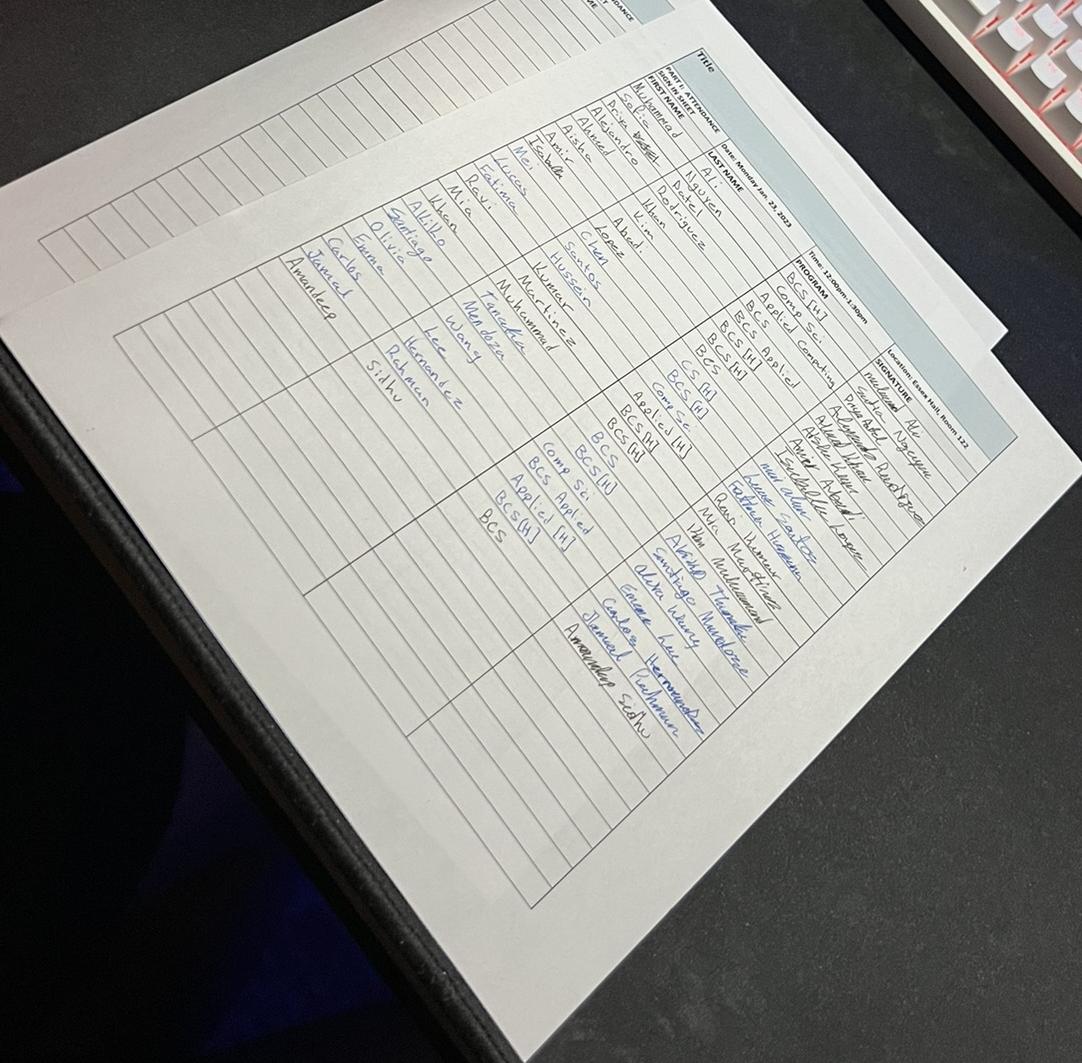 DANCE
ME
Title Date: Monday Jan. 23, 2023 Time: 12:00pm-1:30pm Location: Essex Hall, Room 122
PART I: ATTENDANCE
SIGN IN SHEET
FIRST NAME LAST NAME PROGRAM SIGNATURE
Muhammad Ali BCS [H] Muhammad Ali
Sofia Nguyen Comp Sci Sofia Nguyen
Priya Patel Applied Computing Priya Patel
Alejandro Rodriguez BCS Alejandro Rodriguez
Ahmed Khan BCS Applied Ahmed Khan
Aisha Kim BCS [H] Aisha Kim
Amir Abadi BCS [H] Amir Abadi
Isabella Lopez BCS Isabella Lopez
Mei Chen CS [H]
Lucas Santos BCS [H] Lucas Santos
Fatima Hussein Comp Sc Fatima Hussein
Ravi Kumar Applied [H] Ravi Kumar
Mia Martinez BCS [H] Mia Martinez
Khan Muhammad BCS [H] Khan Muhammad
Akiko Tanaka BCS Akiko Tanaka
Santiago Mendoza BCS [H] Santiago Mendoza
Olivia Wang Comp Sci Olivia Wang
Emma Lee BCS Applied Emma Lee
Carlos Hernandez Applied [H] Carlos Hernandez
Jamal Rahman BCS [H] Jamal Rahman
Amandeep Sidhu BCS Amandeep Sidhu